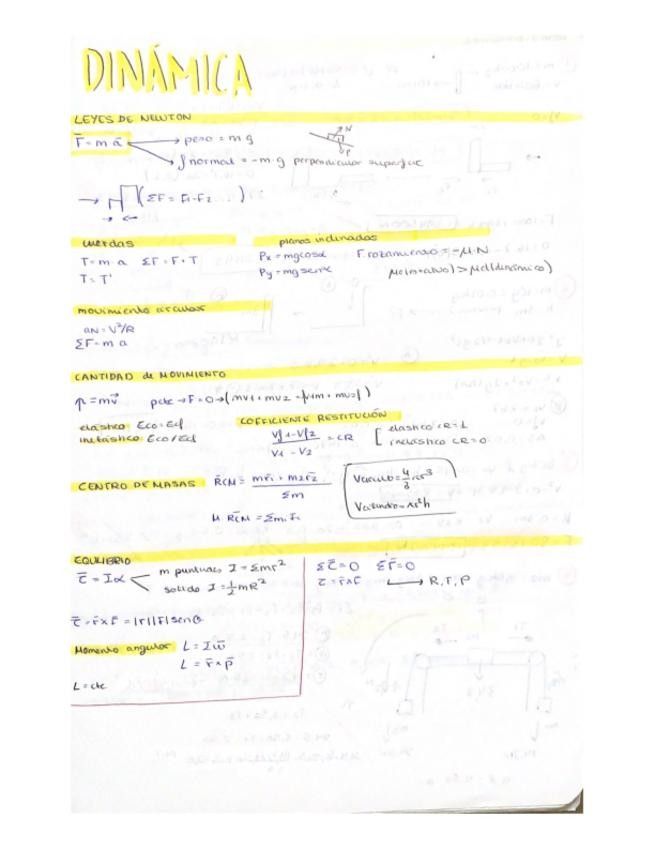 DINÁMICA
LEYES DE NEWTON
F̄ = m·ā → peso = m·g
→ ∫ normal = -m·g perpendicular superficie
N
P
→ (ΣF = F1-F2...)
cuerdas
planos inclinados
T = m·a ΣF = F + T Px = mgcosα F. rozamiento = -μ·N
T = T' Py = mgsenα μe(estatico) > μd(dinámico)
movimiento circular
aN = V²/R
ΣF = m a
CANTIDAD de MOVIMIENTO
p = mv⃗ p cte → F = 0 →
elástico Eco = Ecf
COEFICIENTE RESTITUCIÓN
inelástico Eco ≠ Ecf
Vf1 - Vf2 / V1 - V2 = CR
[ elástico CR = 1
inelástico CR = 0
CENTRO DE MASAS R̄CM = mr̄1 + m2r̄2 / Σm
M R̄CM = Σmi r̄i
Vcirculo = 4/3 πr³
Vcilindro = πr²h
EQUILIBRIO
τ̄ = Iα m puntuales I = Σmr²
solido I = 1/2 mR²
Στ̄ = 0 ΣF̄ = 0
τ = r̄×F̄ → R, F, P
τ̄ = r̄×F̄ = |r||F|senθ
Momento angular L = Iω̄
L = r̄×p̄
L = cte